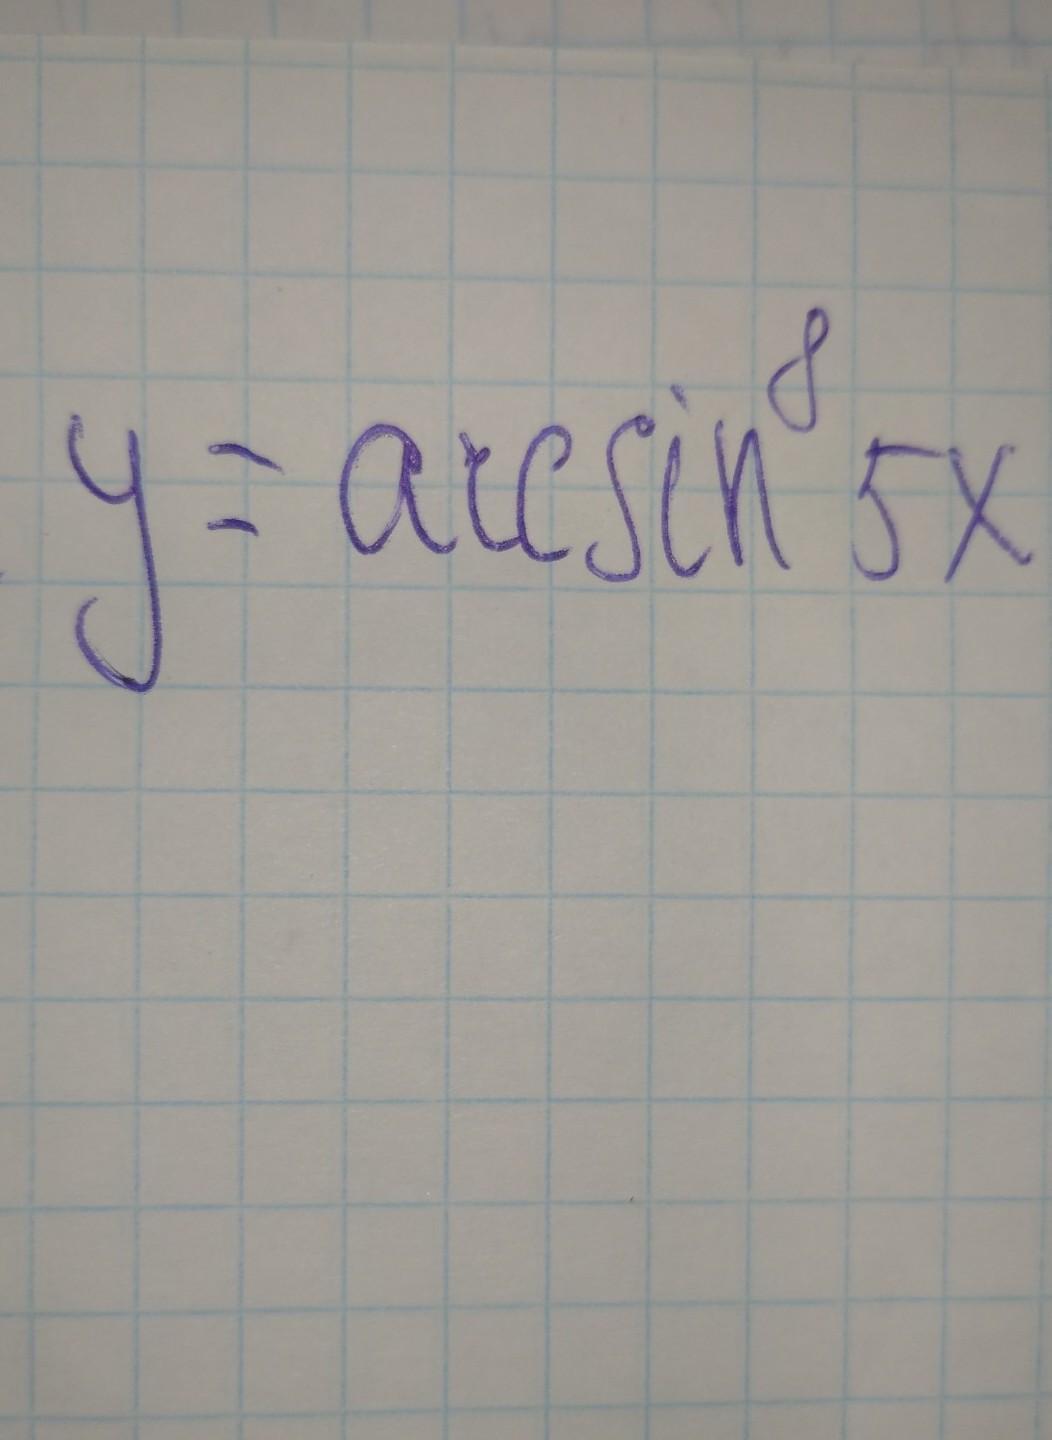 y = arcsin⁸ 5x